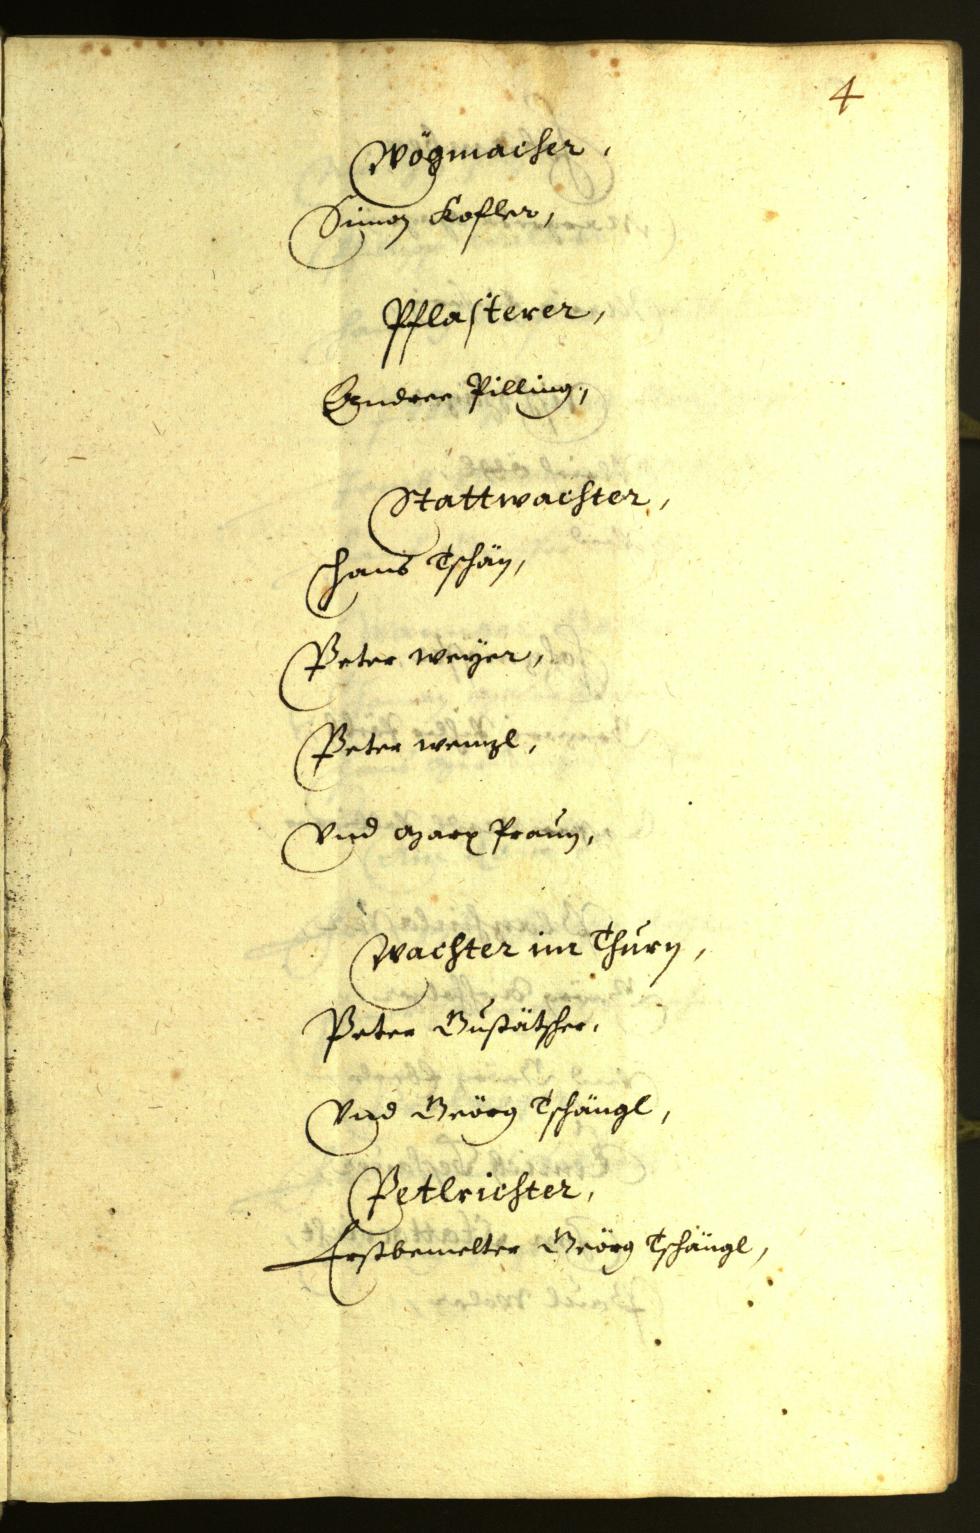 4
Wögmacher,
Simon Kofler,
Pflasterer,
Andree Pilling,
Stattwachter,
Hans Tschän,
Peter weyer,
Peter wenzl,
Vnd Marx Praun,
Wachter im Thurn,
Peter Gustätscher,
Vnd Geörg Tschängl,
Petlrichter,
Erstbemelter Geörg Tschängl,